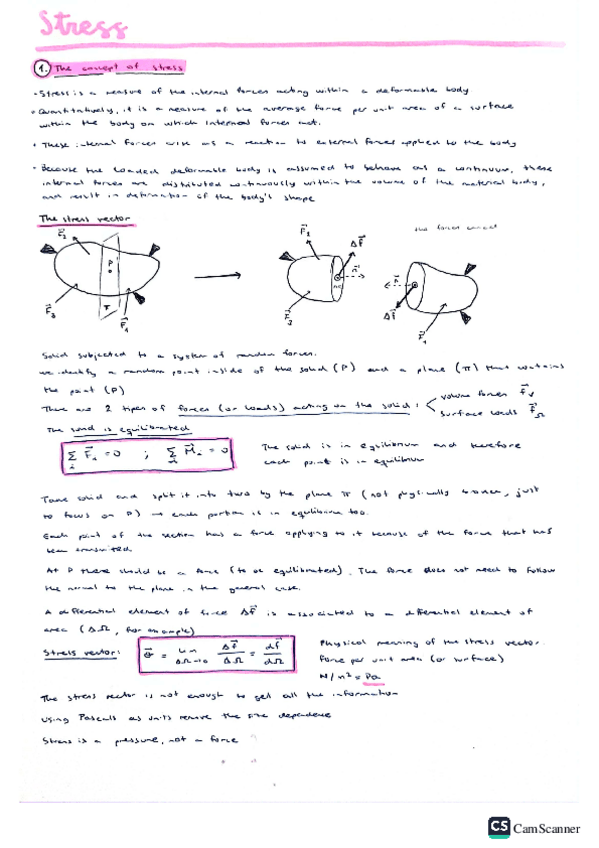 Stress
1. The concept of stress
• Stress is a measure of the internal forces acting within a deformable body.
• Quantitatively, it is a measure of the average force per unit area of a surface
within the body on which internal forces act.
• These internal forces arise as a reaction to external forces applied to the body
• Because the loaded deformable body is assumed to behave as a continuum, these
internal forces are distributed continuously within the volume of the material body,
and result in deformation of the body's shape
The stress vector
the forces cancel
F₂ P π F₃ F₁
F₂ Δf n F₃
n Δf F₁
Solid subjected to a system of random forces.
We identify a random point inside of the solid (P) and a plane (π) that contains
the point (P)
There are 2 types of forces (or loads) acting on the solid:
volume forces f_v
surface loads F_Ω
The solid is equilibrated
Σ F_i = 0 ; Σ M_i = 0
The solid is in equilibrium and therefore
each point is in equilibrium
Take solid and split it into two by the plane π (not physically broken, just
to focus on P) → each portion is in equilibrium too.
Each point of the section has a force applying to it because of the force that has
been transmitted
At P there should be a force (to be equilibrated). The force does not need to follow
the normal to the plane in the general case.
A differential element of force Δf is associated to a differential element of
area (ΔΩ, for example)
Stress vector: σ = lim ΔΩ→0 Δf/ΔΩ = df/dΩ
Physical meaning of the stress vector.
Force per unit area (or surface)
N/m² = Pa
The stress vector is not enough to get all the information
Using Pascals as units remove the size dependence
Stress is a pressure, not a force
CS CamScanner